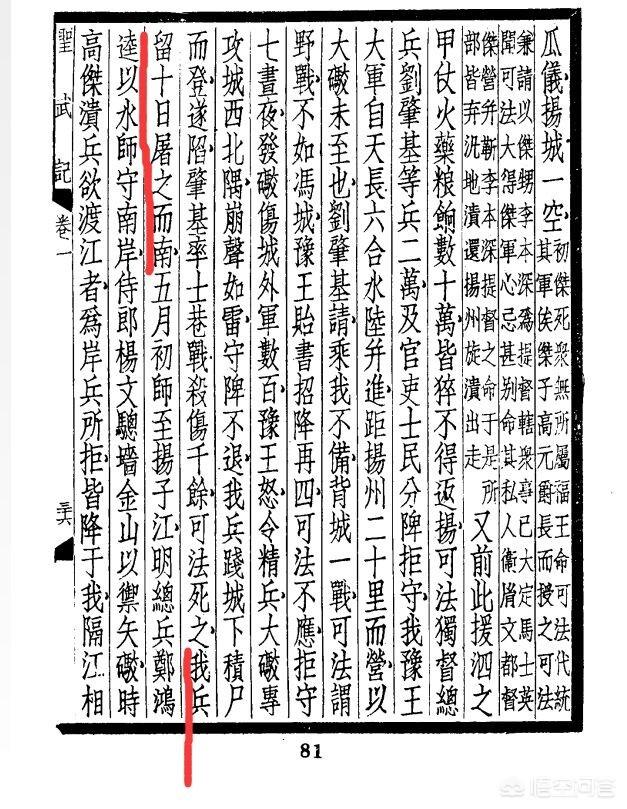 瓜儀揚城一空初傑死眾無所屬福王命可法代統
其軍俟傑子高元爵長而授之可法
兼請以傑甥李本深為提督轄眾事已大定馬士英
聞可法大得傑軍心忌甚別命其私人衛胤文都督
傑營并斬李本深提督之命于是所
部皆弃汛地潰還揚州旋潰出走又前此援泗之
甲仗火藥粮餉數十萬皆猝不得返揚可法獨督總
兵劉肇基等兵二萬及官吏士民分陴拒守我豫王
大軍自天長六合水陸并進距揚州二十里而營以
大礮未至也劉肇基請乘我不備背城一戰可法謂
野戰不如馮城豫王貽書招降再四可法不應拒守
七晝夜發礮傷城外軍數百豫王怒令精兵大礮專
攻城西北隅崩聲如雷守陴不退我兵踐城下積尸
而登遂陷肇基率士巷戰殺傷千餘可法死之我兵
留十日屠之而南五月初師至揚子江明總兵鄭鴻
逵以水師守南岸侍郎楊文驄墻金山以禦矢礮時
高傑潰兵欲渡江者為岸兵所拒皆降于我隔江相
聖武記 卷一 三六
81
悟空问答